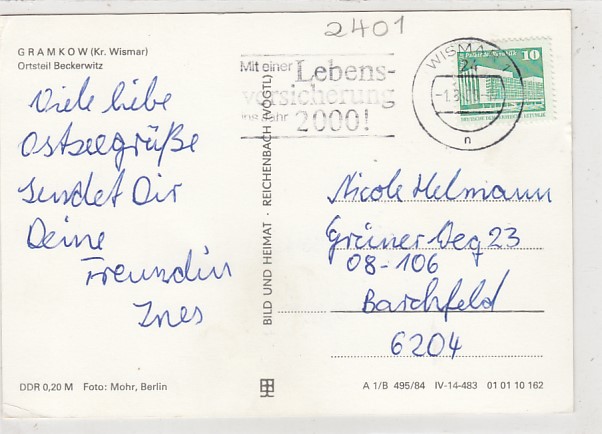 2401
GRAMKOW (Kr. Wismar)
Ortsteil Beckerwitz
Mit einer Lebens-
versicherung
ins Jahr 2000!
WISMAR
10
24
n
Viele liebe
Ostseegrüße
sendet Dir
Deine
Freundin
Ines
BILD UND HEIMAT · REICHENBACH (VOGTL)
Nicole Helmann
Grüner Weg 23
08-106
Barchfeld
6204
DDR 0,20 M Foto: Mohr, Berlin
A 1/B 495/84 IV-14-483 01 01 10 162